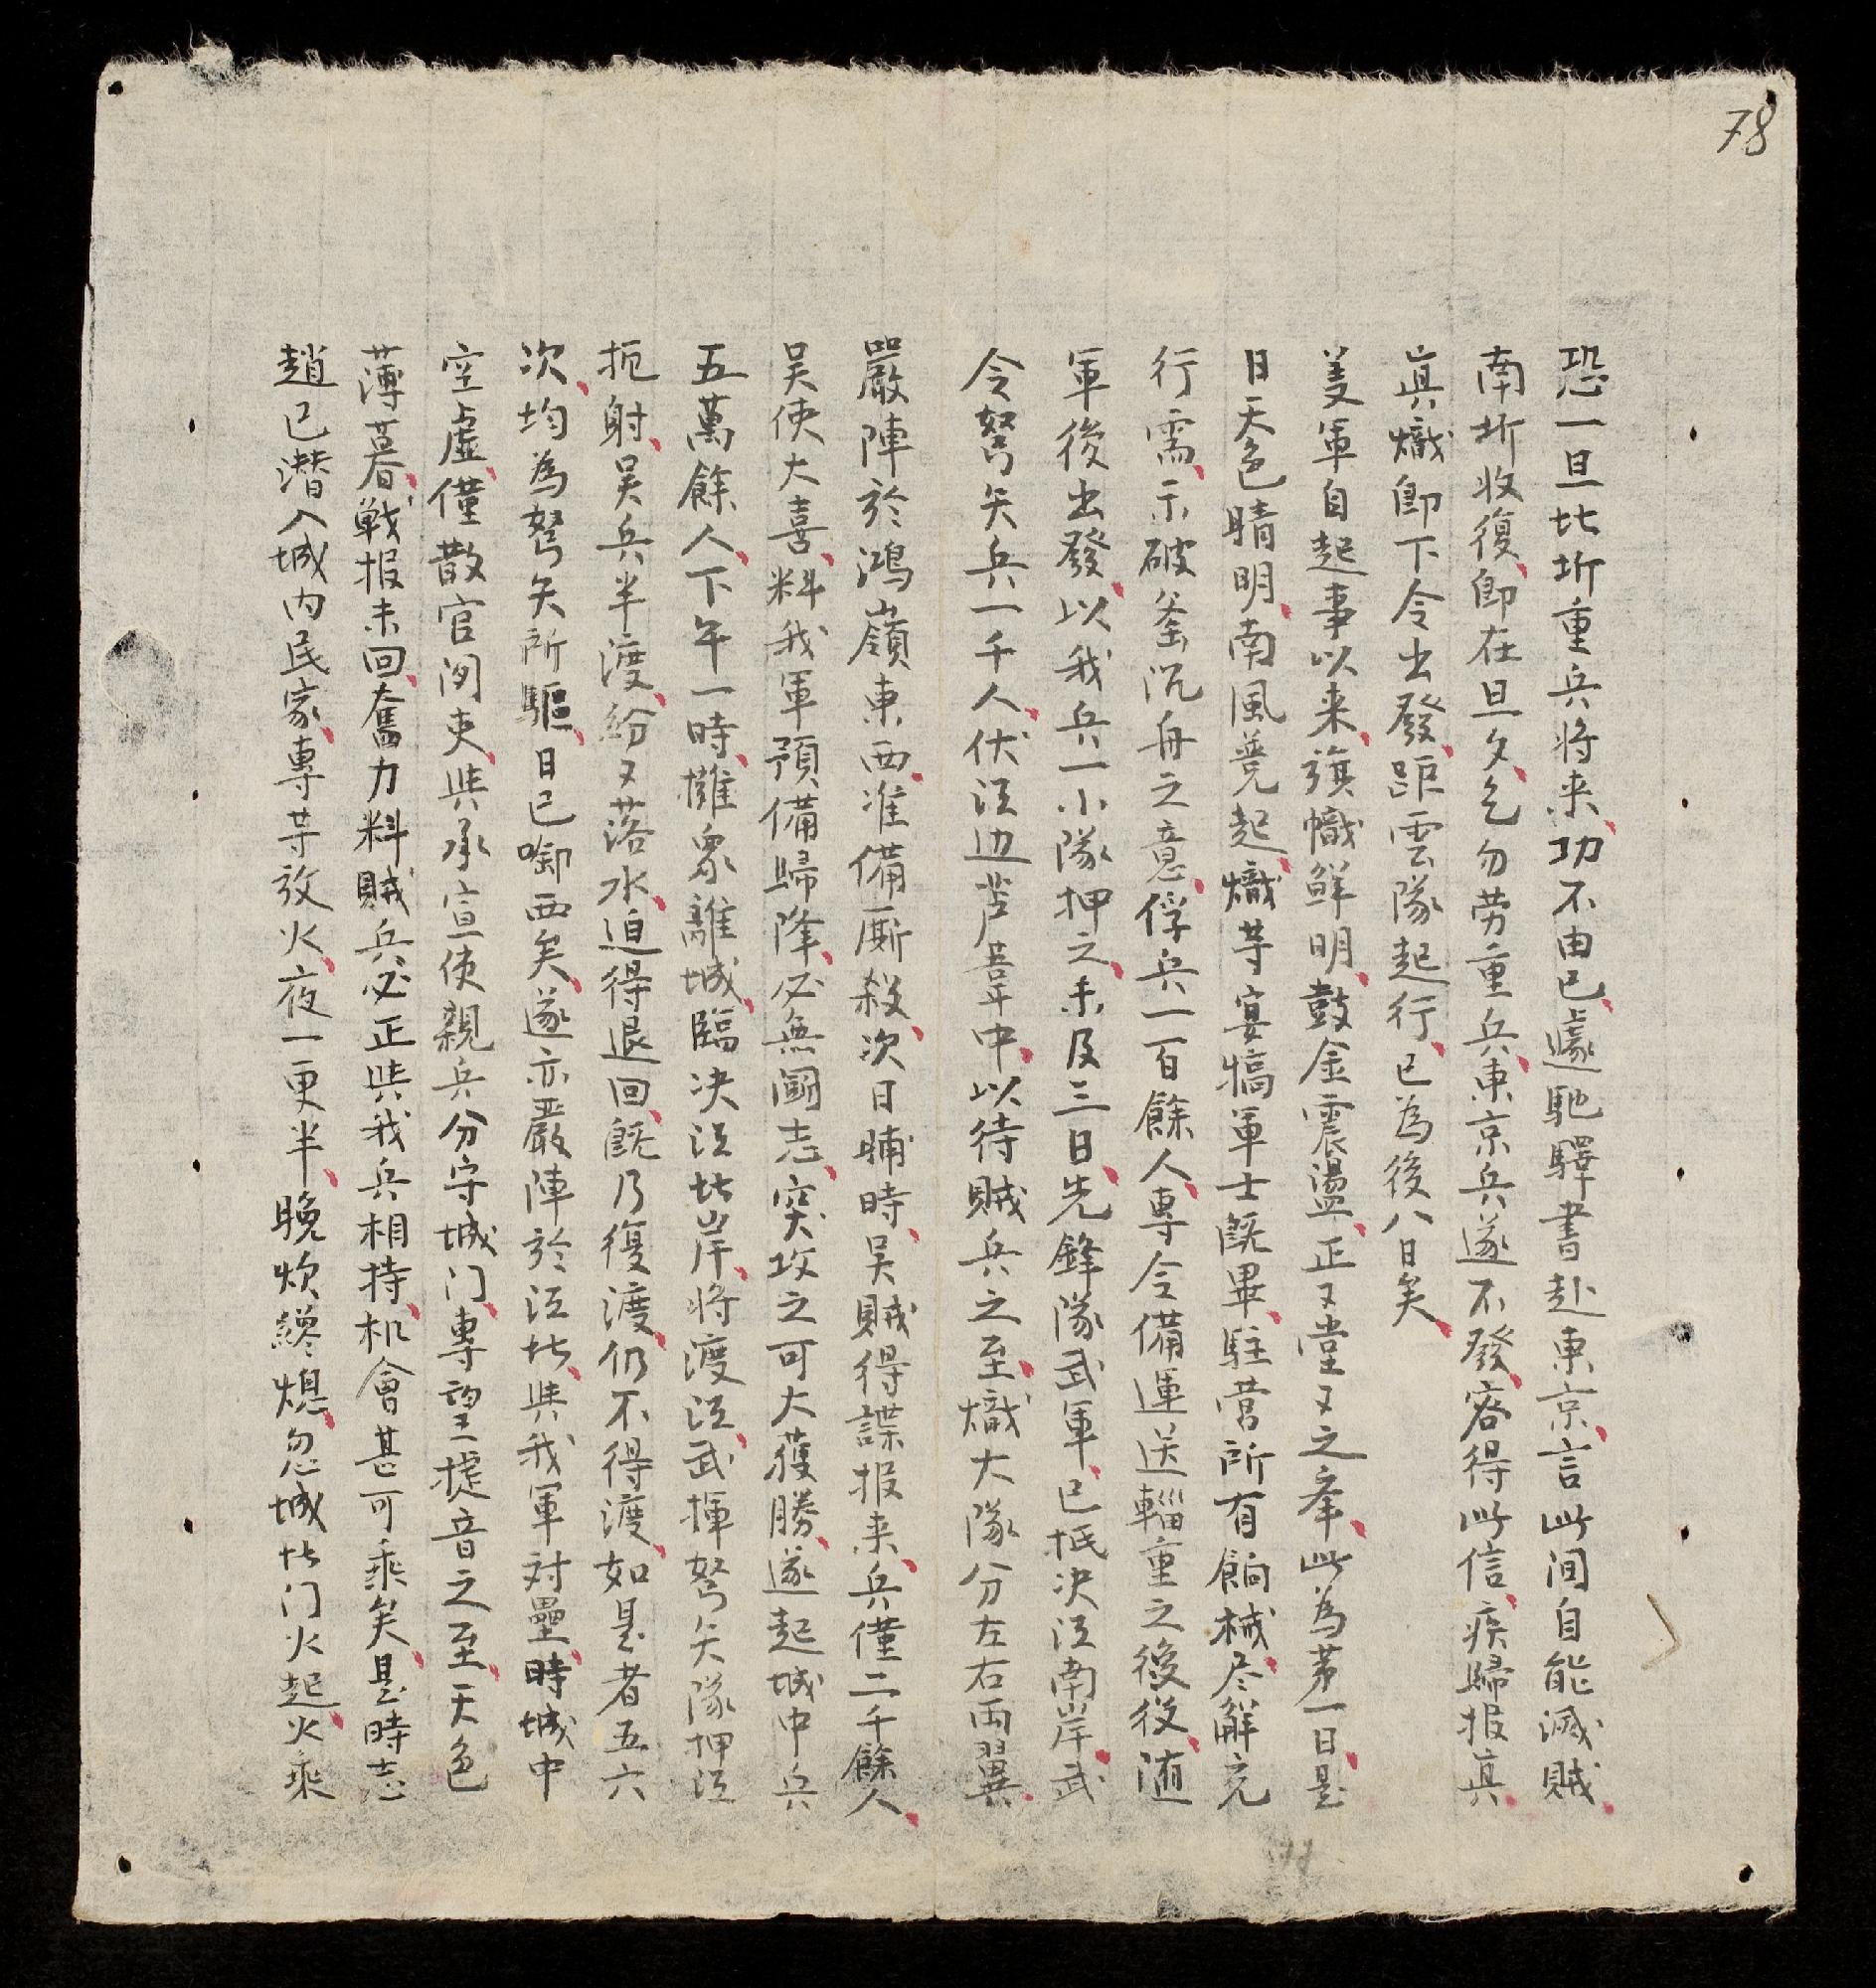 78
恐一旦北圻重兵将来、功不由己、遽馳驛書赴東京、言此间自能滅賊、
南圻收復、卽在旦夕、乞勿劳重兵、東京兵遂不發、窓得此信、疾歸报真、
真熾卽下令出發、距雲隊起行、已為後八日矣、
美軍自起事以来、旗幟鮮明、鼓金震盪、正又堂又之举、此為苐一日、是
日天色晴明、南風競起、熾䓁宴犒軍士既畢、駐营所有餉械、尽解充
行需、示破釜沉舟之意、俘兵一百餘人、專令備運送輜重之後役、随
軍後出發、以我兵一小隊押之、未及三日、先鋒隊武軍、已抵决江南岸、武
令弩矢兵一千人、伏江边芦葦中、以待賊兵之至、熾大隊分左右両翼、
嚴陣於鴻嶺東西、准備厮殺、次日晡時、吴賊得諜报来、兵僅二千餘人、
吴使大喜、料我軍預備歸降、必無鬬志、突攻之可大獲勝、遂起城中兵
五萬餘人、下午一時、擁衆離城、臨决江北岸、将渡江、武揮弩矢隊押江
扼射、吴兵半渡、紛又落水、迫得退回、既乃復渡、仍不得渡、如是者五六
次、均為弩矢所驅、日已啣西矣、遂亦嚴陣於江北、與我軍对壘、時城中
空虚、僅散官閑吏、與承宣使親兵分守城门、專望捷音之至、天色
薄暮、戰报未回、奮力料賊兵必正與我兵相持、机會甚可乘矣、是時志
趙已潜入城内民家、專䓁放火、夜一更半、晚炊纔熄、忽城北门火起、火乘